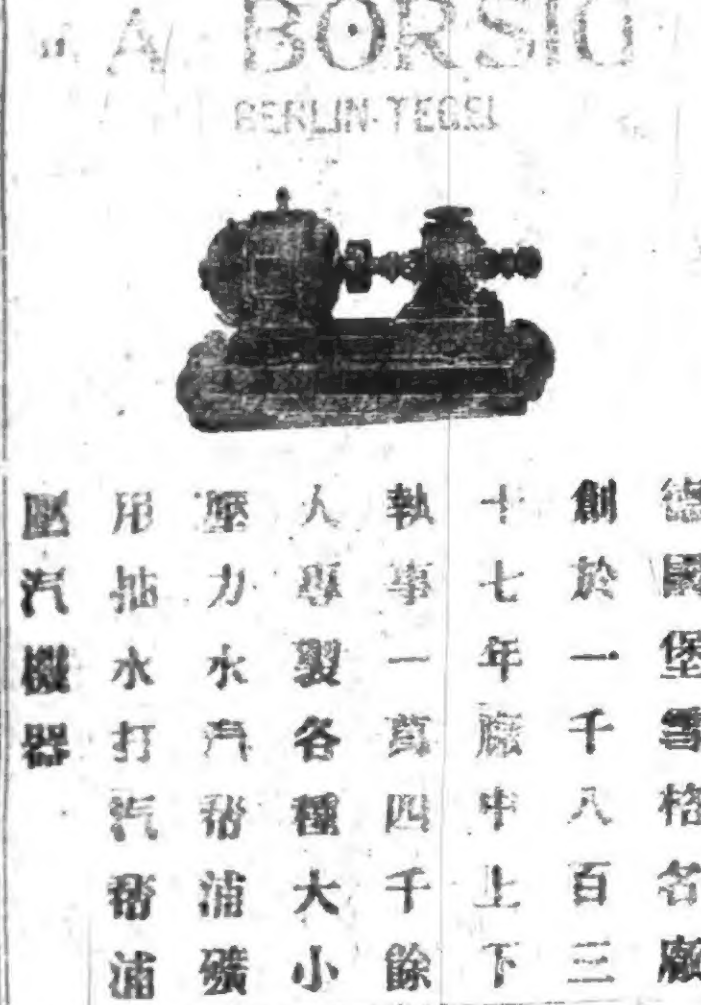 A. BORSIG
BERLIN-TEGEL
德國堡雪格名廠
創於一千八百三
十七年廠中上下
執事一萬四千餘
人專製各種大小
壓力水汽幇浦礦
用抽水打汽幇浦
壓汽機器